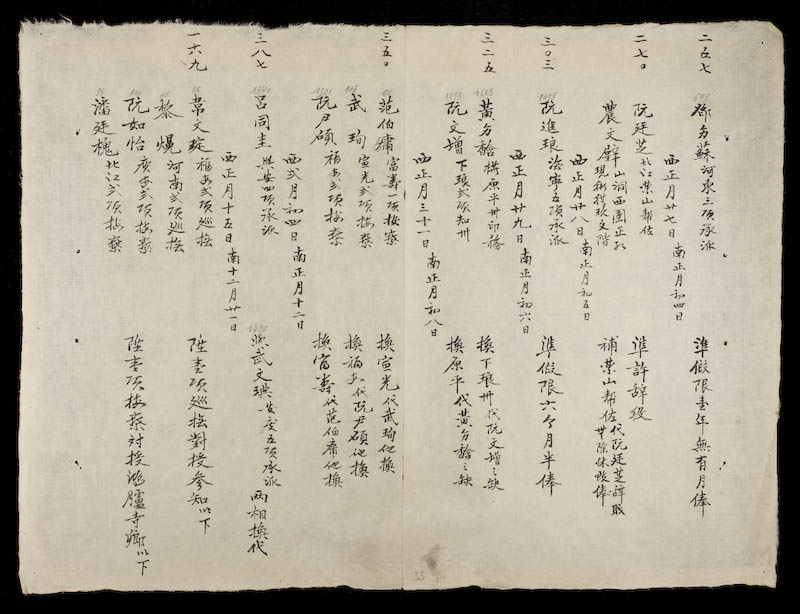 二五七
蘇河東三項承派 準假限壹年無有月俸
西正月廿七日 南正月初四日
二七〇
阮廷芝北江荣山幫佐 準許辞役
農文 山洞西園正 現衔授玖文階 補荣山幫佐代阮廷芝辞职
西正月廿八日 南正月初五日
三〇三
阮進琅海寧五項承派 準假限六个月半俸
西正月廿九日 南正月初六日
三二五
黃 原平卅印務 換下琅卅代阮文增之缺
阮文增 下琅弍項知卅 換原平代黃 之缺
西正月三十一日 南正月初八日
三五〇
范伯 富壽一項按察 換宣光代武珣他換
武珣 宣光弍項按察 換福安代阮尹碩他換
阮尹碩 福安弍項按察 換富壽代范伯 他換
西弍月初四日 南正月十二日
三八七
吕同圭 興安四項承派 照武文 五項承派 两相換代
西正月十五日 南十二月廿一日
一六九
韦文琔 福安弍項巡撫 陞壹項巡撫對授參知以下
黎 河南弍項巡撫
阮如怡 廣安弍項按察
潘廷槐 北江弍項按察 陞壹項按察对授鴻臚寺卿以下
33